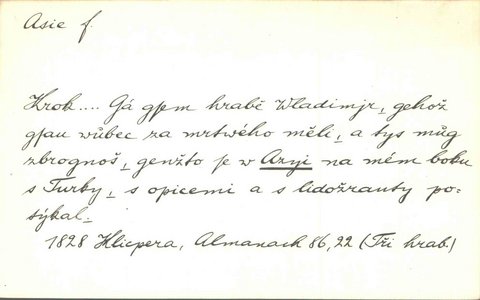 Asie f.
Hrob.... Gá gsem hrabě Wladimjr, gehož
gsau wůbec za mrtwého měli, a tys můg
zbrognoš, genžto se w Azyi na mém boku
s Turky, s opicemi a s lidožrauty po=
týkal.
1828 Klicpera, Almanach 86,22 (Tři hrab.)